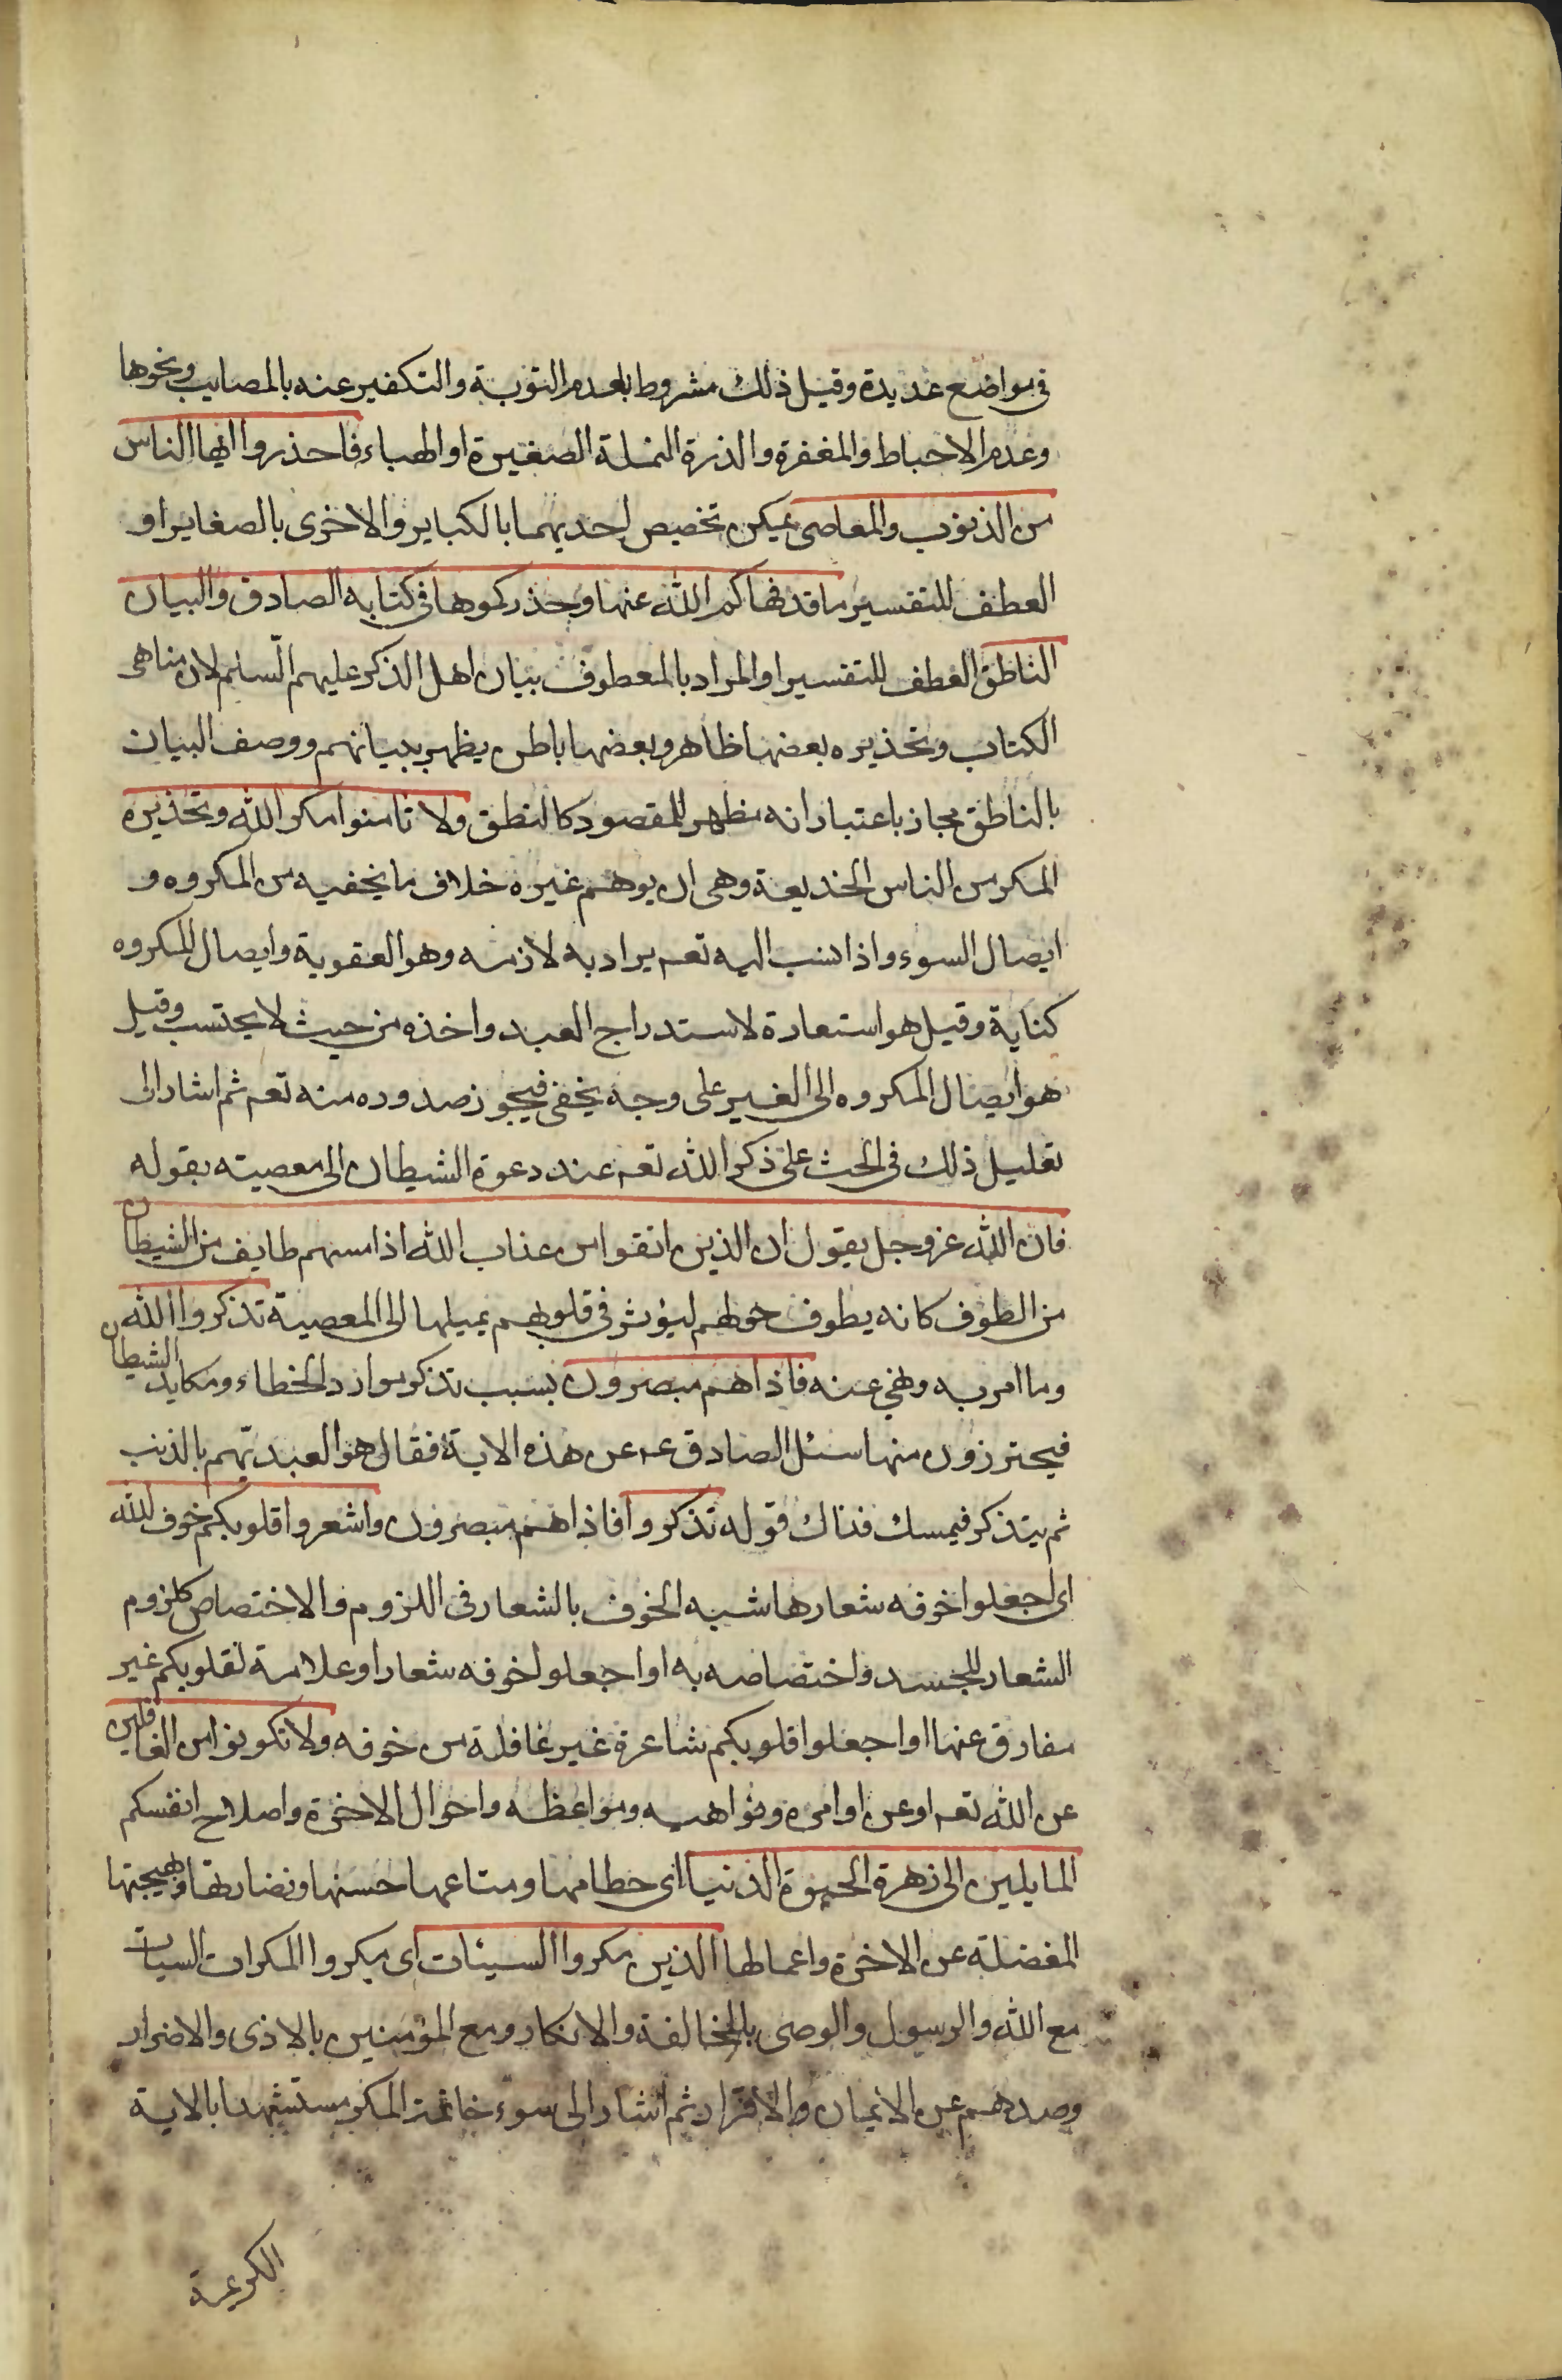 في مواضع عديدة وقيل ذلك مشروط بعدم التوبة والتكفير عنه بالمصايب ونحوها
وعدم الاحباط والمغفرة والذرة النملة الصغيرة او الهباء فاحذروا ايها الناس
من الذنوب والمعاصي يمكن تخصيص احديهما بالكباير والاخرى بالصغاير او
العطف للتفسير ما قد نهاكم الله عنها وحذركموها في كتابه الصادق والبيان
الناطق العطف للتفسير او المراد بالمعطوف بيان اهل الذكر عليهم السلم لان مناهى
الكتاب وتحذيره بعضها ظاهر وبعضها باطن يظهر ببيانهم ووصف البيان
بالناطق مجاز باعتبار انه مظهر للمقصود كالنطق ولا تامنوا مكر الله وتحذيره
المكر من الناس الخديعة وهى ان يوهم غيره خلاف ما يخفيه من المكروه و
ايصال السوء واذا نسب اليه تعم يراد به لازمه وهو العقوبة وايصال المكروه
كناية وقيل هو استعارة لاستدراج العبد واخذه من حيث لا يحتسب وقيل
هو ايصال المكروه الى الغير على وجه يخفى فيجوز صدوره منه تعم ثم اشار الى
تعليل ذلك في الحث على ذكر الله تعم عند دعوة الشيطان الى معصيته بقوله
فان الله عز وجل يقول ان الذين اتقوا من عذاب الله اذا مسهم طايف من الشيطان
من الطوف كانه يطوف حولهم ليؤثر في قلوبهم يميلها الى المعصية تذكروا الله
وما امر به ونهي عنه فاذا هم مبصرون بسبب تذكر موارد الخطاء ومكايد الشيطان
فيحترزون منها سئل الصادق عم عن هذه الاية فقال هو العبد يهم بالذنب
ثم يتذكر فيمسك فذاك قوله تذكروا فاذا هم مبصرون واشعروا قلوبكم خوف الله
اى اجعلوا خوفه شعارها شبه الخوف بالشعار في اللزوم والاختصاص كلزوم
الشعار للجسد واختصاصه به او اجعلوا خوفه شعارا وعلامة لقلوبكم غير
مفارق عنها او اجعلوا قلوبكم شاعرة غير غافلة من خوفه ولا تكونوا من الغافلين
عن الله تعم او عن اوامره ونواهيه ومواعظه واحوال الاخرة واصلاح انفسكم
المايلين الى زهرة الحيوة الدنيا اى حطامها ومتاعها حسنها ونضارتها وبهيجتها
المفضلة عن الاخرة واعمالها الذين مكروا السيئات اى مكروا المكرات السيات
مع الله والرسول والوصى بالمخالفة والانكار ومع المؤمنين بالاذى والاضرار
وصدهم عن الايمان والاقرار ثم اشار الى سوء خاتمة المكر مستشهدا بالاية
الكريمة